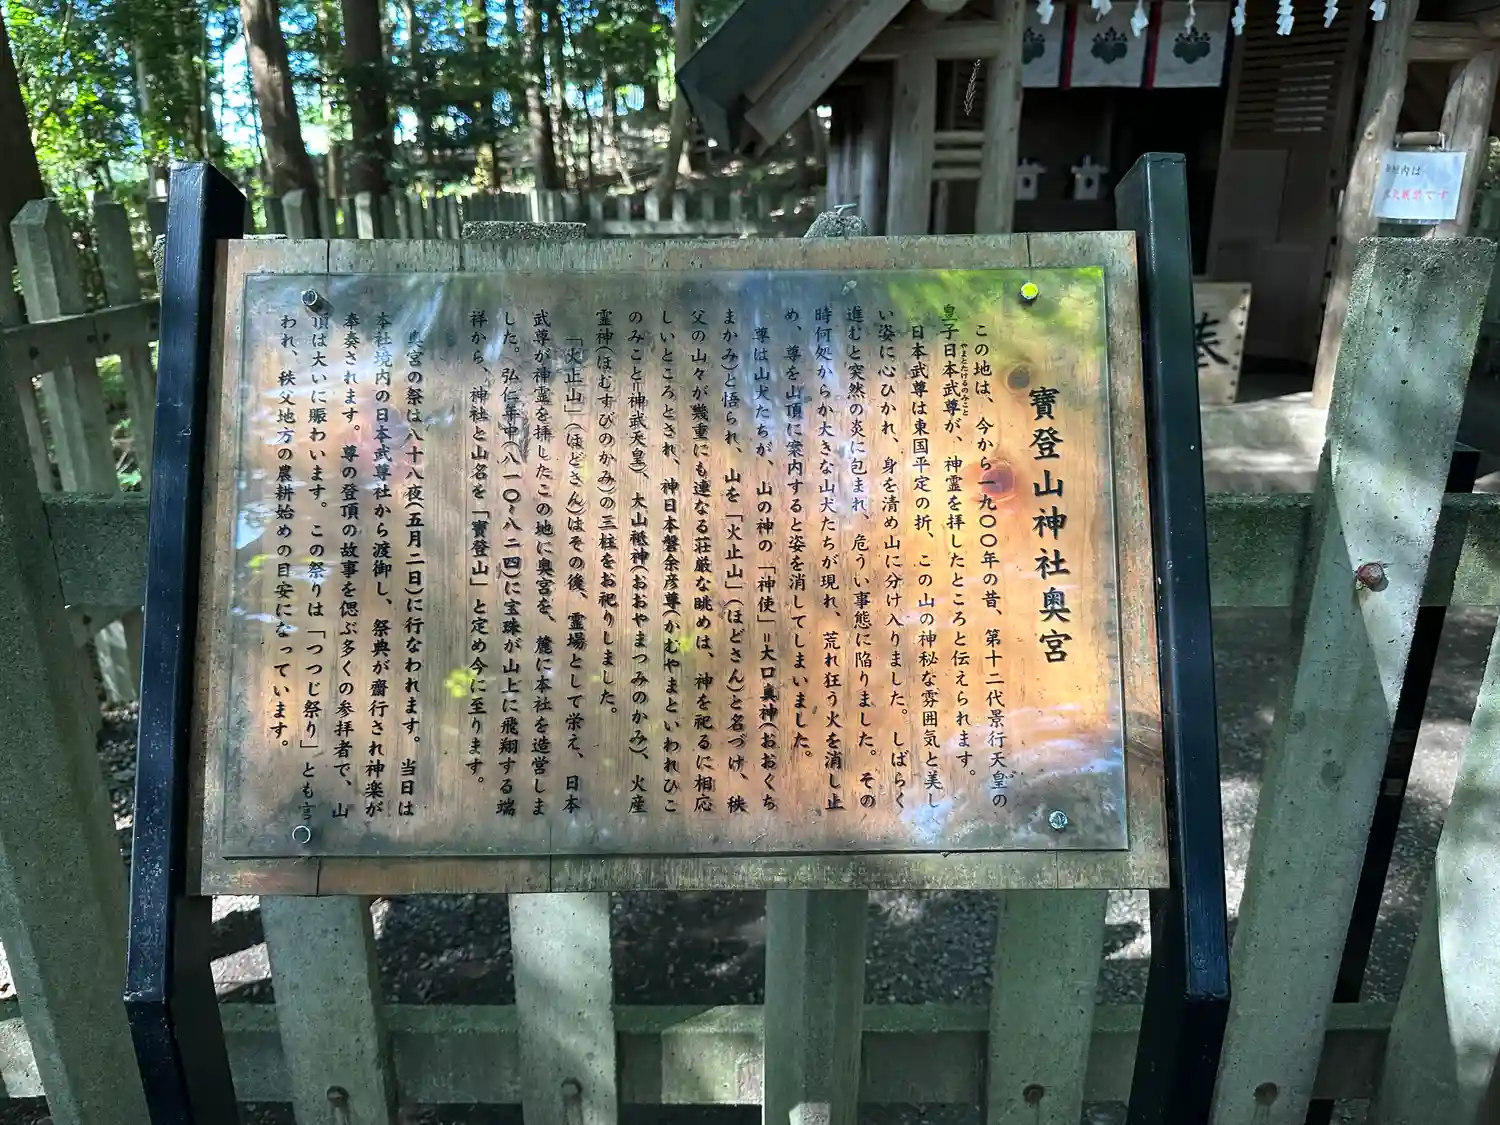 寶登山神社奥宮
この地は、今から一九〇〇年の昔、第十二代景行天皇の
皇子日本武尊が、神霊を拝したところと伝えられます。
やまとたけるのみこと
日本武尊は東国平定の折、この山の神秘な雰囲気と美し
い姿に心ひかれ、身を清め山に分け入りました。しばらく
進むと突然の炎に包まれ、危うい事態に陥りました。その
時何処からか大きな山犬たちが現れ、荒れ狂う火を消し止
め、尊を山頂に案内すると姿を消してしまいました。
尊は山犬たちが、山の神の「神使」=大口真神(おおくち
まかみ)と悟られ、山を「火止山」(ほどさん)と名づけ、秩
父の山々が幾重にも連なる荘厳な眺めは、神を祀るに相応
しいところとされ、神日本磐余彦尊(かむやまといわれひこ
のみこと=神武天皇)、大山祗神(おおやまつみのかみ)、火産
霊神(ほむすびのかみ)の三柱をお祀りしました。
「火止山」(ほどさん)はその後、霊場として栄え、日本
武尊が神霊を拝したこの地に奥宮を、麓に本社を造営しま
した。弘仁年中(八一〇~八二四)に宝珠が山上に飛翔する端
祥から、神社と山名を「寶登山」と定め今に至ります。
奥宮の祭は八十八夜(五月二日)に行なわれます。当日は
本社境内の日本武尊社から渡御し、祭典が齋行され神楽が
奉奏されます。尊の登頂の故事を偲ぶ多くの参拝者で、山
頂は大いに賑わいます。この祭りは「つつじ祭り」とも言
われ、秩父地方の農耕始めの目安になっています。
奉
内は
火気厳禁です